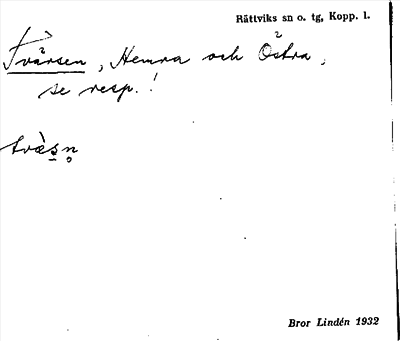 Rättviks sn o. tg, Kopp. l.
Tvärsen, Hemra och Östra,
se resp.!
tvàsn
Bror Lindén 1932